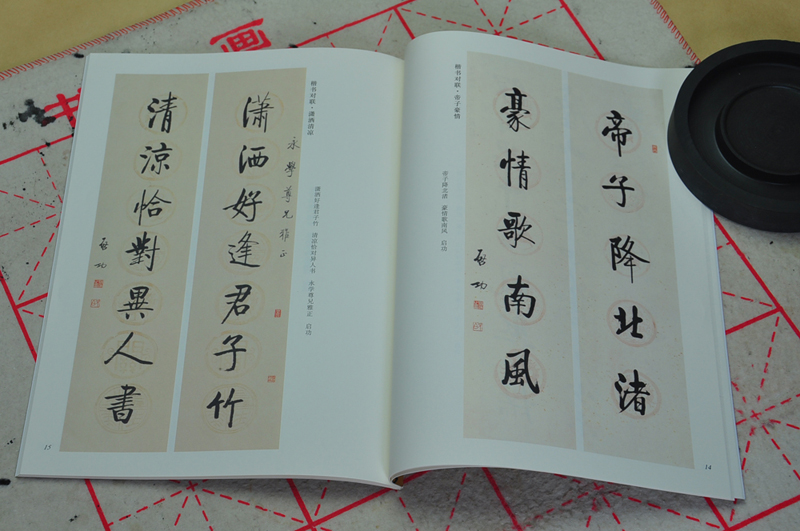 帝子降北渚
豪情歌南風
啟功
楷书对联·帝子豪情
帝子降北渚 豪情歌南风 启功
14
楷书对联·潇洒清凉
潇洒好逢君子竹 清凉恰对异人书 永学尊兄雅正 启功
永學尊兄雅正
瀟洒好逢君子竹
清涼恰對異人書
啟功
15
画